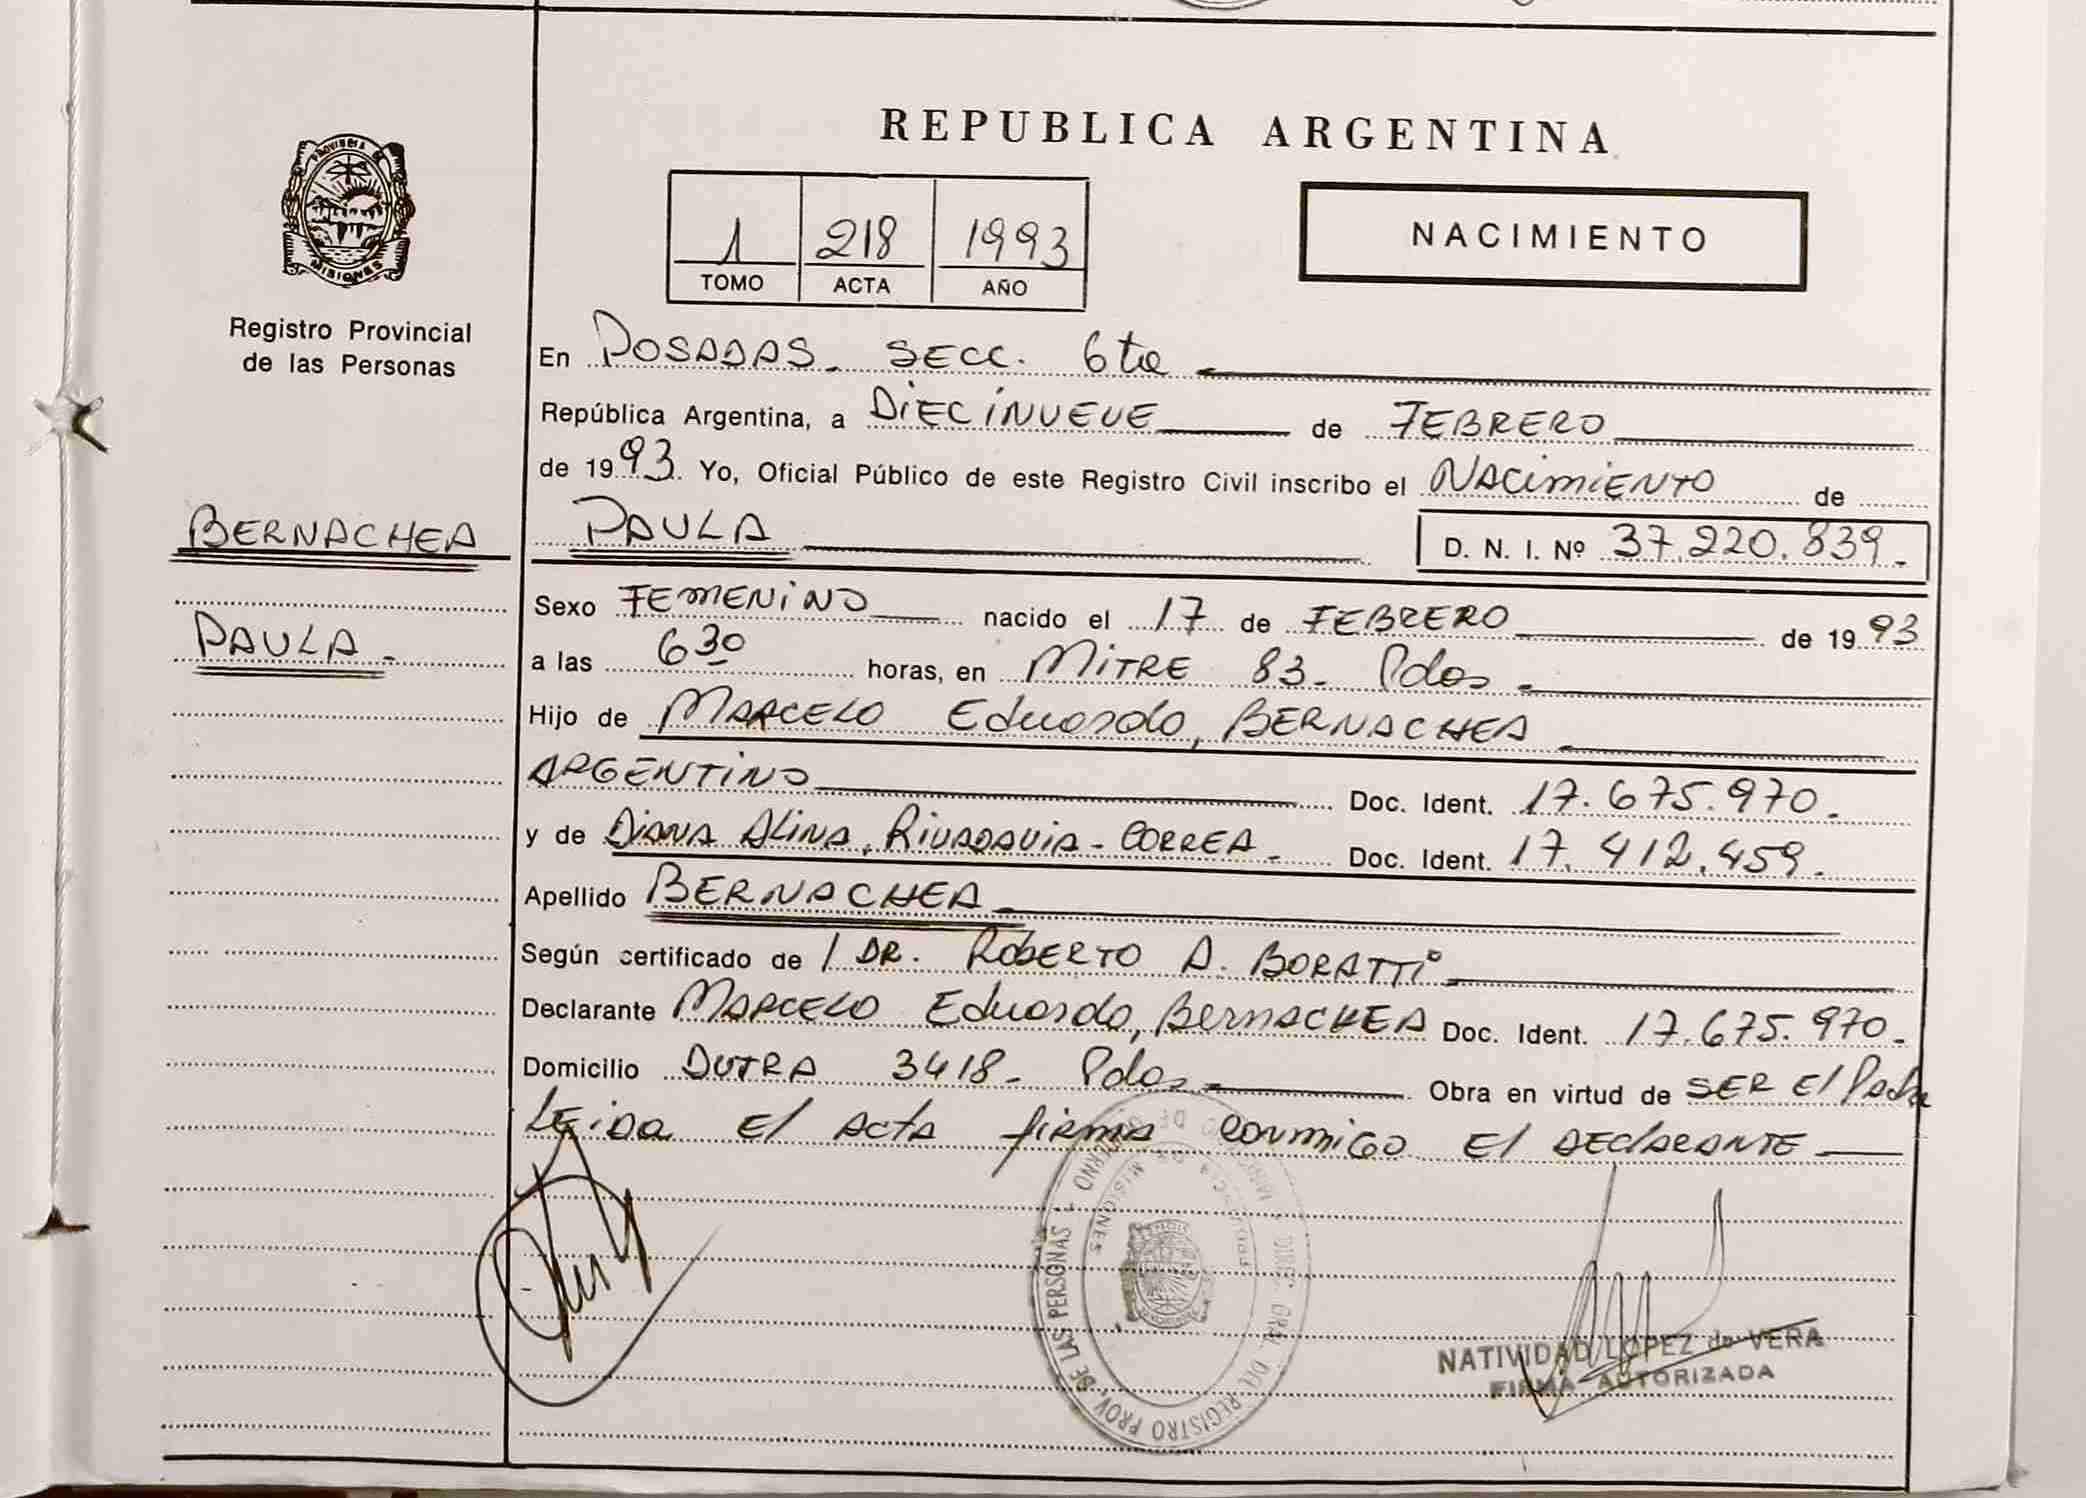 REPUBLICA ARGENTINA
PROVINCIA DE
MISIONES
Registro Provincial
de las Personas
1 218 1993
TOMO ACTA AÑO
NACIMIENTO
En POSADAS. SECC. 6ta
República Argentina, a DIECINUEVE de FEBRERO
de 1993. Yo, Oficial Público de este Registro Civil inscribo el NACIMIENTO de
BERNACHEA
PAULA.
PAULA D. N. I. Nº 37.220.839.-
Sexo FEMENINO nacido el 17 de FEBRERO de 1993
a las 6 30 horas, en MITRE 83- Pdas
Hijo de MARCELO Eduardo, BERNACHEA
ARGENTINO Doc. Ident. 17.675.970.-
y de DIANA ALINA, RIVADAVIA-CORREA. Doc. Ident. 17.412.459.-
Apellido BERNACHEA
Según certificado de / DR. ROBERTO A. BORATTI
Declarante MARCELO Eduardo, BERNACHEA Doc. Ident. 17.675.970.-
Domicilio DUTRA 3418- Pdas Obra en virtud de SER El Padre
LEIDA El ACTA firma conmigo El DECLARANTE
DIREC. GRAL. DEL REGISTRO PROV. DE LAS PERSONAS
MISIONES
NATIVIDAD LOPEZ de VERA
FIRMA AUTORIZADA